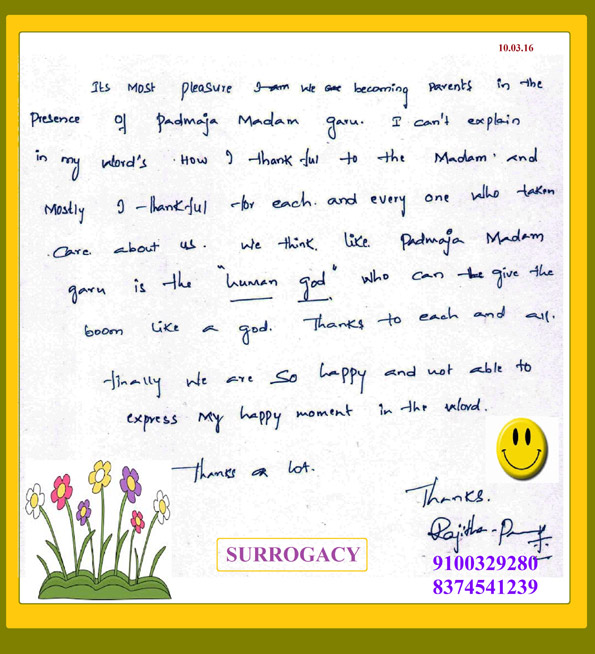 10.03.16
Its Most pleasure I am we are becoming Parents in the
Presence of Padmaja Madam garu. I can't explain
in my word's. How I thankful to the Madam. and
Mostly I thankful for each. and every one who taken
Care about us. We think. like Padmaja Madam
garu is the "human god" who can give the
boom like a god. Thanks to each and all.
finally we are so happy and not able to
express My happy moment in the word.
Thanks a lot.
Thanks.
SURROGACY
9100329280
8374541239